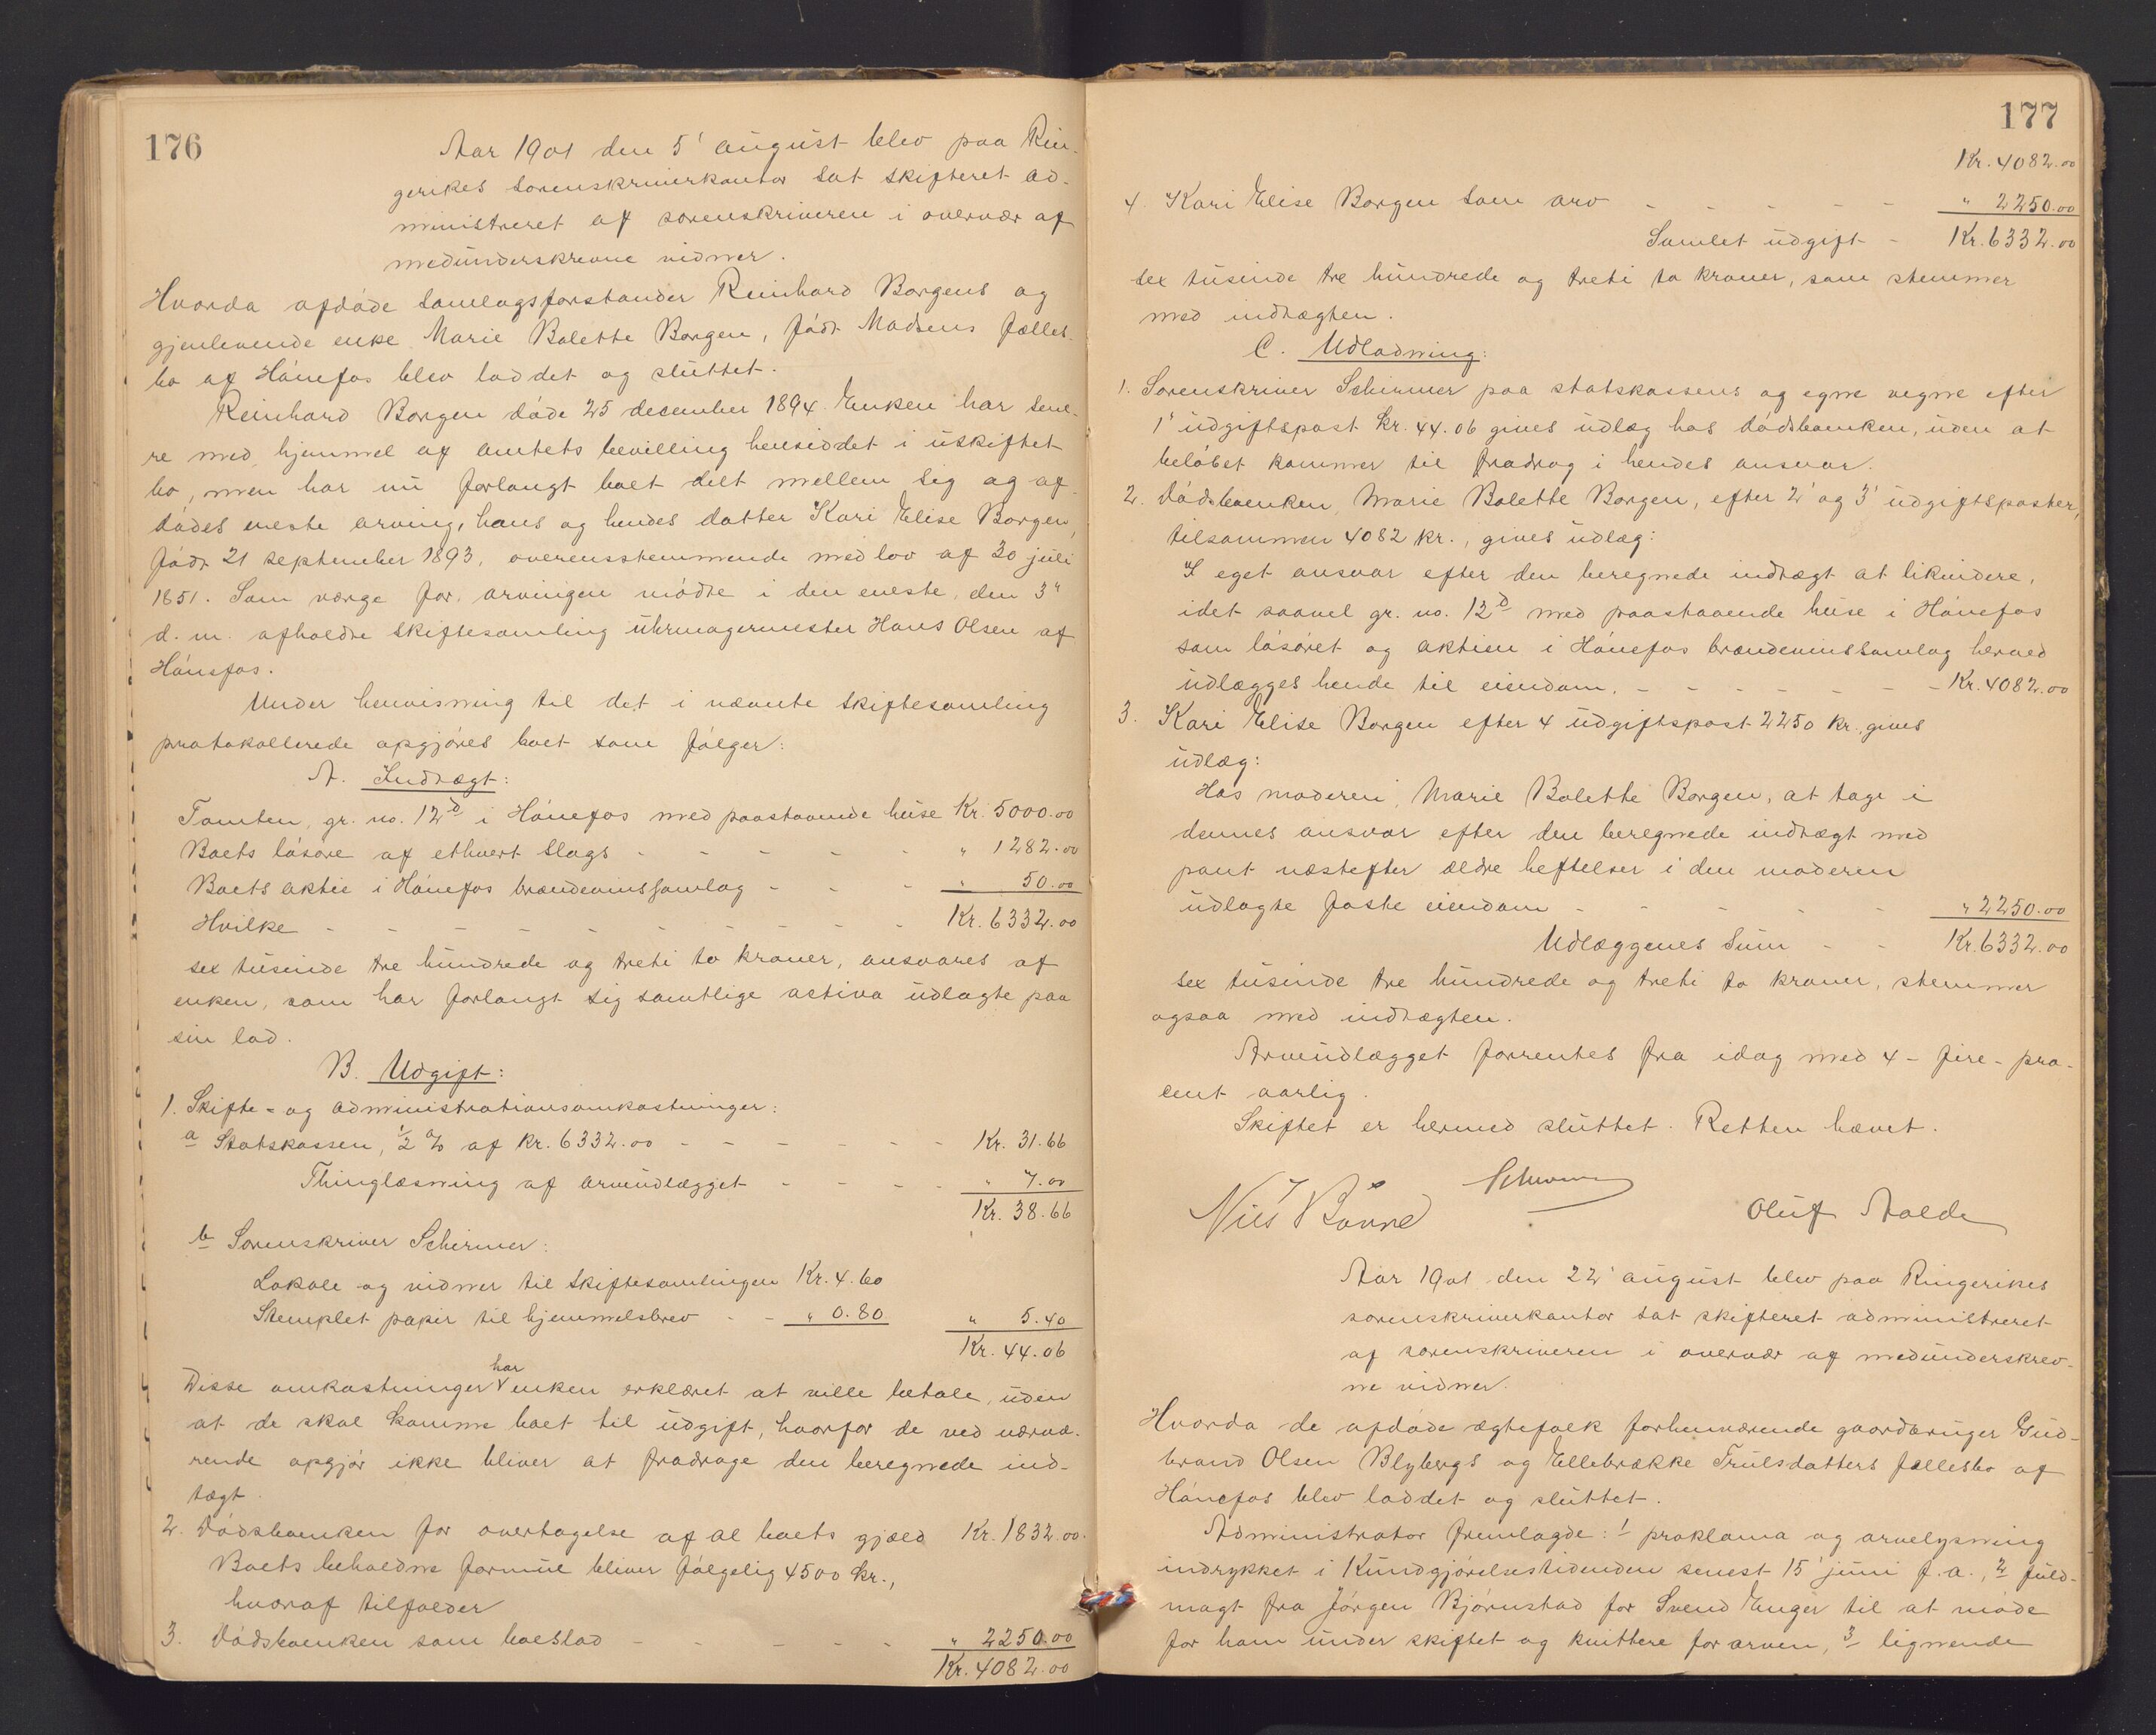 176
Aar 1901 den 5' august blev paa Rin-
gerikes sorenskriverkontor sat skifteret ad-
ministreret af sorenskriveren i overvær af
medunderskrevne vidner.
Hvorda afdøde samlagsforstander Reinhard Borgens og
gjenlevende enke Marie Bolette Borgen, født Madsens fælles-
bo af Hønefos blev loddet og sluttet.
Reinhard Borgen døde 25 december 1894. Enken har sene-
re med hjemmel af amtets bevilling hensiddet i uskiftet
bo, men har nu forlangt boet delt mellem sig og af-
dødes eneste arving, hans og hendes datter Kari Elise Borgen,
født 21 september 1893, overensstemmende med lov af 30 juli
1851. Som værge for arvingen mødte i den eneste, den 3'
d. m. afholdte skiftesamling uhrmagermester Hans Olsen af
Hønefos.
Under henvisning til det i nævnte skiftesamling
protokollerede opgjøres boet som følger:
A. Indtægt:
Tomten, gr. no. 12d i Hønefos med paastaaende huse Kr. 5000.00
Boets løsøre af ethvert slags - - - - - " 1282.00
Boets aktie i Hønefos brændevinssamlag - - - " 50.00
Hvilke - - - - - - - - Kr. 6332.00
sex tusinde tre hundrede og treti to kroner, ansvares af
enken, som har forlangt sig samtlige activa udlagte paa
sin lod.
B. Udgift:
1. Skifte- og administrationsomkostninger:
a Statskassen, 1/2 % af kr. 6332.00 - - - - - - Kr. 31.66
Thinglæsning af arveudlægget - - - - " 7.00
Kr. 38.66
b Sorenskriver Schirmer:
Lokale og vidner til skiftesamlingen Kr. 4.60
Stemplet papir til hjemmelsbrev - - " 0.80 " 5.40
Kr. 44.06
har
Disse omkostninger enken erklæret at ville betale, uden
at de skal komme boet til udgift, hvorfor de ved nærvæ-
rende opgjør ikke bliver at fradrage den beregnede ind-
tægt.
2. Dødsboenken for overtagelse af al boets gjæld Kr. 1832.00.
Boets beholdne formue bliver følgelig 4500 kr.,
hvoraf tilfalder
3. Dødsboenken som boeslod - - - - - " 2250.00
Kr. 4082.00
177
Kr. 4082.00
4. Kari Elise Borgen som arv - - - - - " 2250.00
Samlet udgift - Kr. 6332.00
sex tusinde tre hundrede og treti to kroner, som stemmer
med indtægten.
C. Udlodning:
1. Sorenskriver Schirmer paa statskassens og egne vegne efter
1' udgiftspost kr. 44.06 gives udlæg hos dødsboenken, uden at
beløbet kommer til fradrag i hendes ansvar.
2. Dødsboenken, Marie Bolette Borgen, efter 2' og 3' udgiftsposter,
tilsammen 4082 kr., gives udlæg:
I eget ansvar efter den beregnede indtægt at likvidere,
idet saavel gr. no. 12d med paastaaende huse i Hønefos
som løsøret og aktien i Hønefos brændevinssamlag herved
udlægges hende til eiendom. - - - - - - Kr. 4082.00
3. Kari Elise Borgen efter 4 udgiftspost 2250 kr. gives
udlæg:
Hos moderen, Marie Bolette Borgen, at tage i
dennes ansvar efter den beregnede indtægt med
pant næstefter ældre heftelser i den moderen
udlagte faste eiendom - - - - - " 2250.00
Udlæggenes sum - - Kr. 6332.00
sex tusinde tre hundrede og treti to kroner, stemmer
ogsaa med indtægten.
Arveudlægget forrentes fra idag med 4 - fire - pro-
cent aarlig.
Skiftet er hermed sluttet. Retten hævet.
Schirmer
Oluf Aalde
Aar 1901 den 22' august blev paa Ringerikes
sorenskriverkontor sat skifteret administreret
af sorenskriveren i overvær af medunderskrev-
ne vidner.
Hvorda de afdøde ægtefolk forhenværende gaardbruger Gud-
brand Olsen Blybergs og Ellebrække Trulsdatters fællesbo af
Hønefos blev loddet og sluttet.
Administrator fremlagde: 1 proklama og arvelysning
indrykket i Kundgjørelsestidenden senest 15' juni f. a., 2 fuld-
magt fra Jørgen Bjørnstad for Svend Enger til at møde
for ham under skiftet og kvittere for arven, 3 lignende